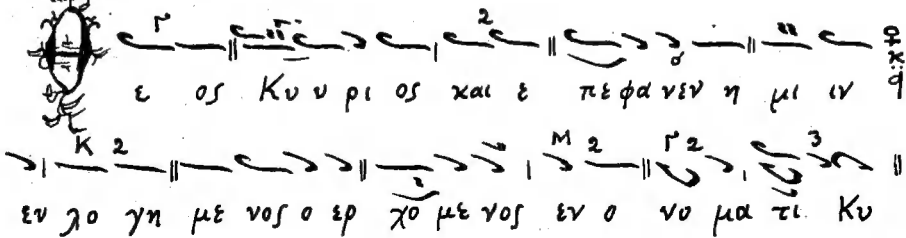 Θ ε ος Κυ υ ρι ος και ε πε φα νεν η μι ιν
ευ λο γη με νος ο ερ χο με νος εν ο νο μα τι Κυ